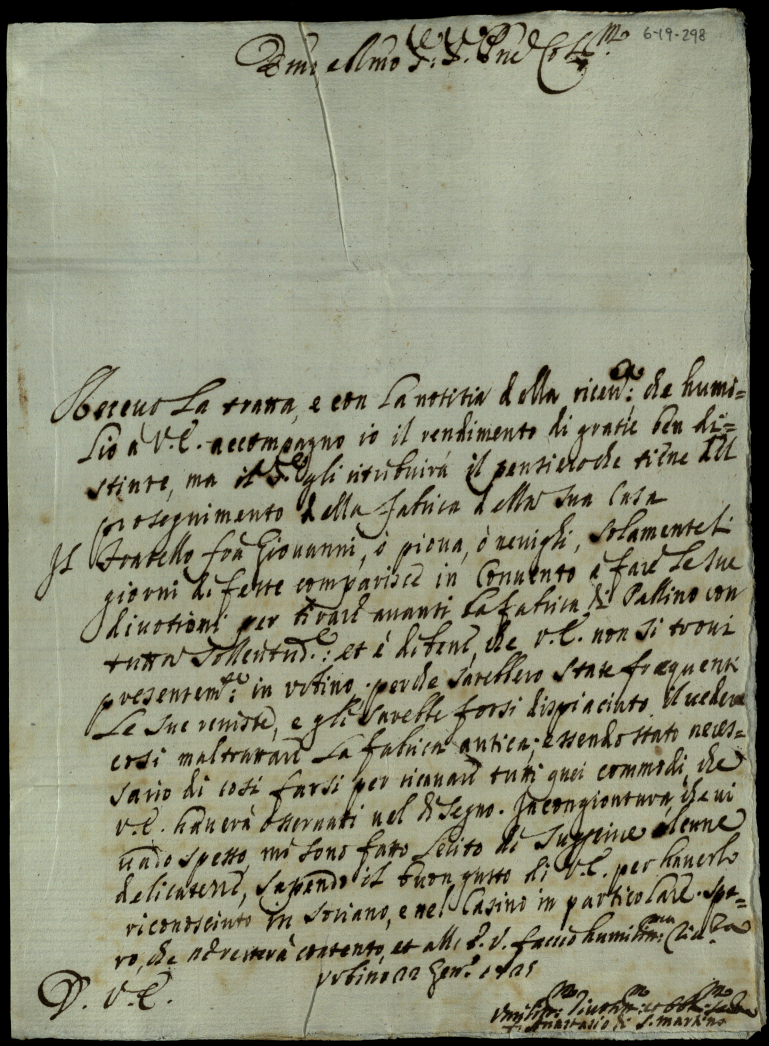 6-19-298
Emo e Rmo S. S. Pne Col.mo
Receuo la tratta, e con la notitia della riceu.ta: che humi=
lio à V.E. accompagno io il rendimento di gratie ben di=
stinte, ma il S.re gli ritribuirà il pensiero che tiene del
proseguimento della fabrica della sua Casa
Il fratello frà Giovanni, ò piova, ò nevighi, solamente li
giorni di feste comparisce in Convento à fare le sue
divotioni per tirare avanti la fabrica di Pallino con
tutta sollecitud.e: et è di bene, che V.E. non si trovi
presentem.te: in Urbino perche sarebbero state frequenti
le sue reviste, e gli sarebbe forsi dispiaciuto il vedere
cosi maltrattare la fabrica antica; essendo stato neces=
sario di cosi farsi per ricavare tutti quei commodi che
V.E. haverà osservati nel disegno. In congiontura, che vi
vado spesso, mi sono fatto lecito di suggerire alcune
delicatezze, sapendo il buon gusto di V.E. per haverlo
riconosciuto in Soriano, e nel Casino in particolare. Spe=
ro, che ne resterà contento, et alla E.V. faccio humilm.a riu.za
Urbino 22 Gen.o 1725
D. V.E.
Umiliss.mo Divotiss.mo et Obblig.mo
F. Anastasio di S. Martino